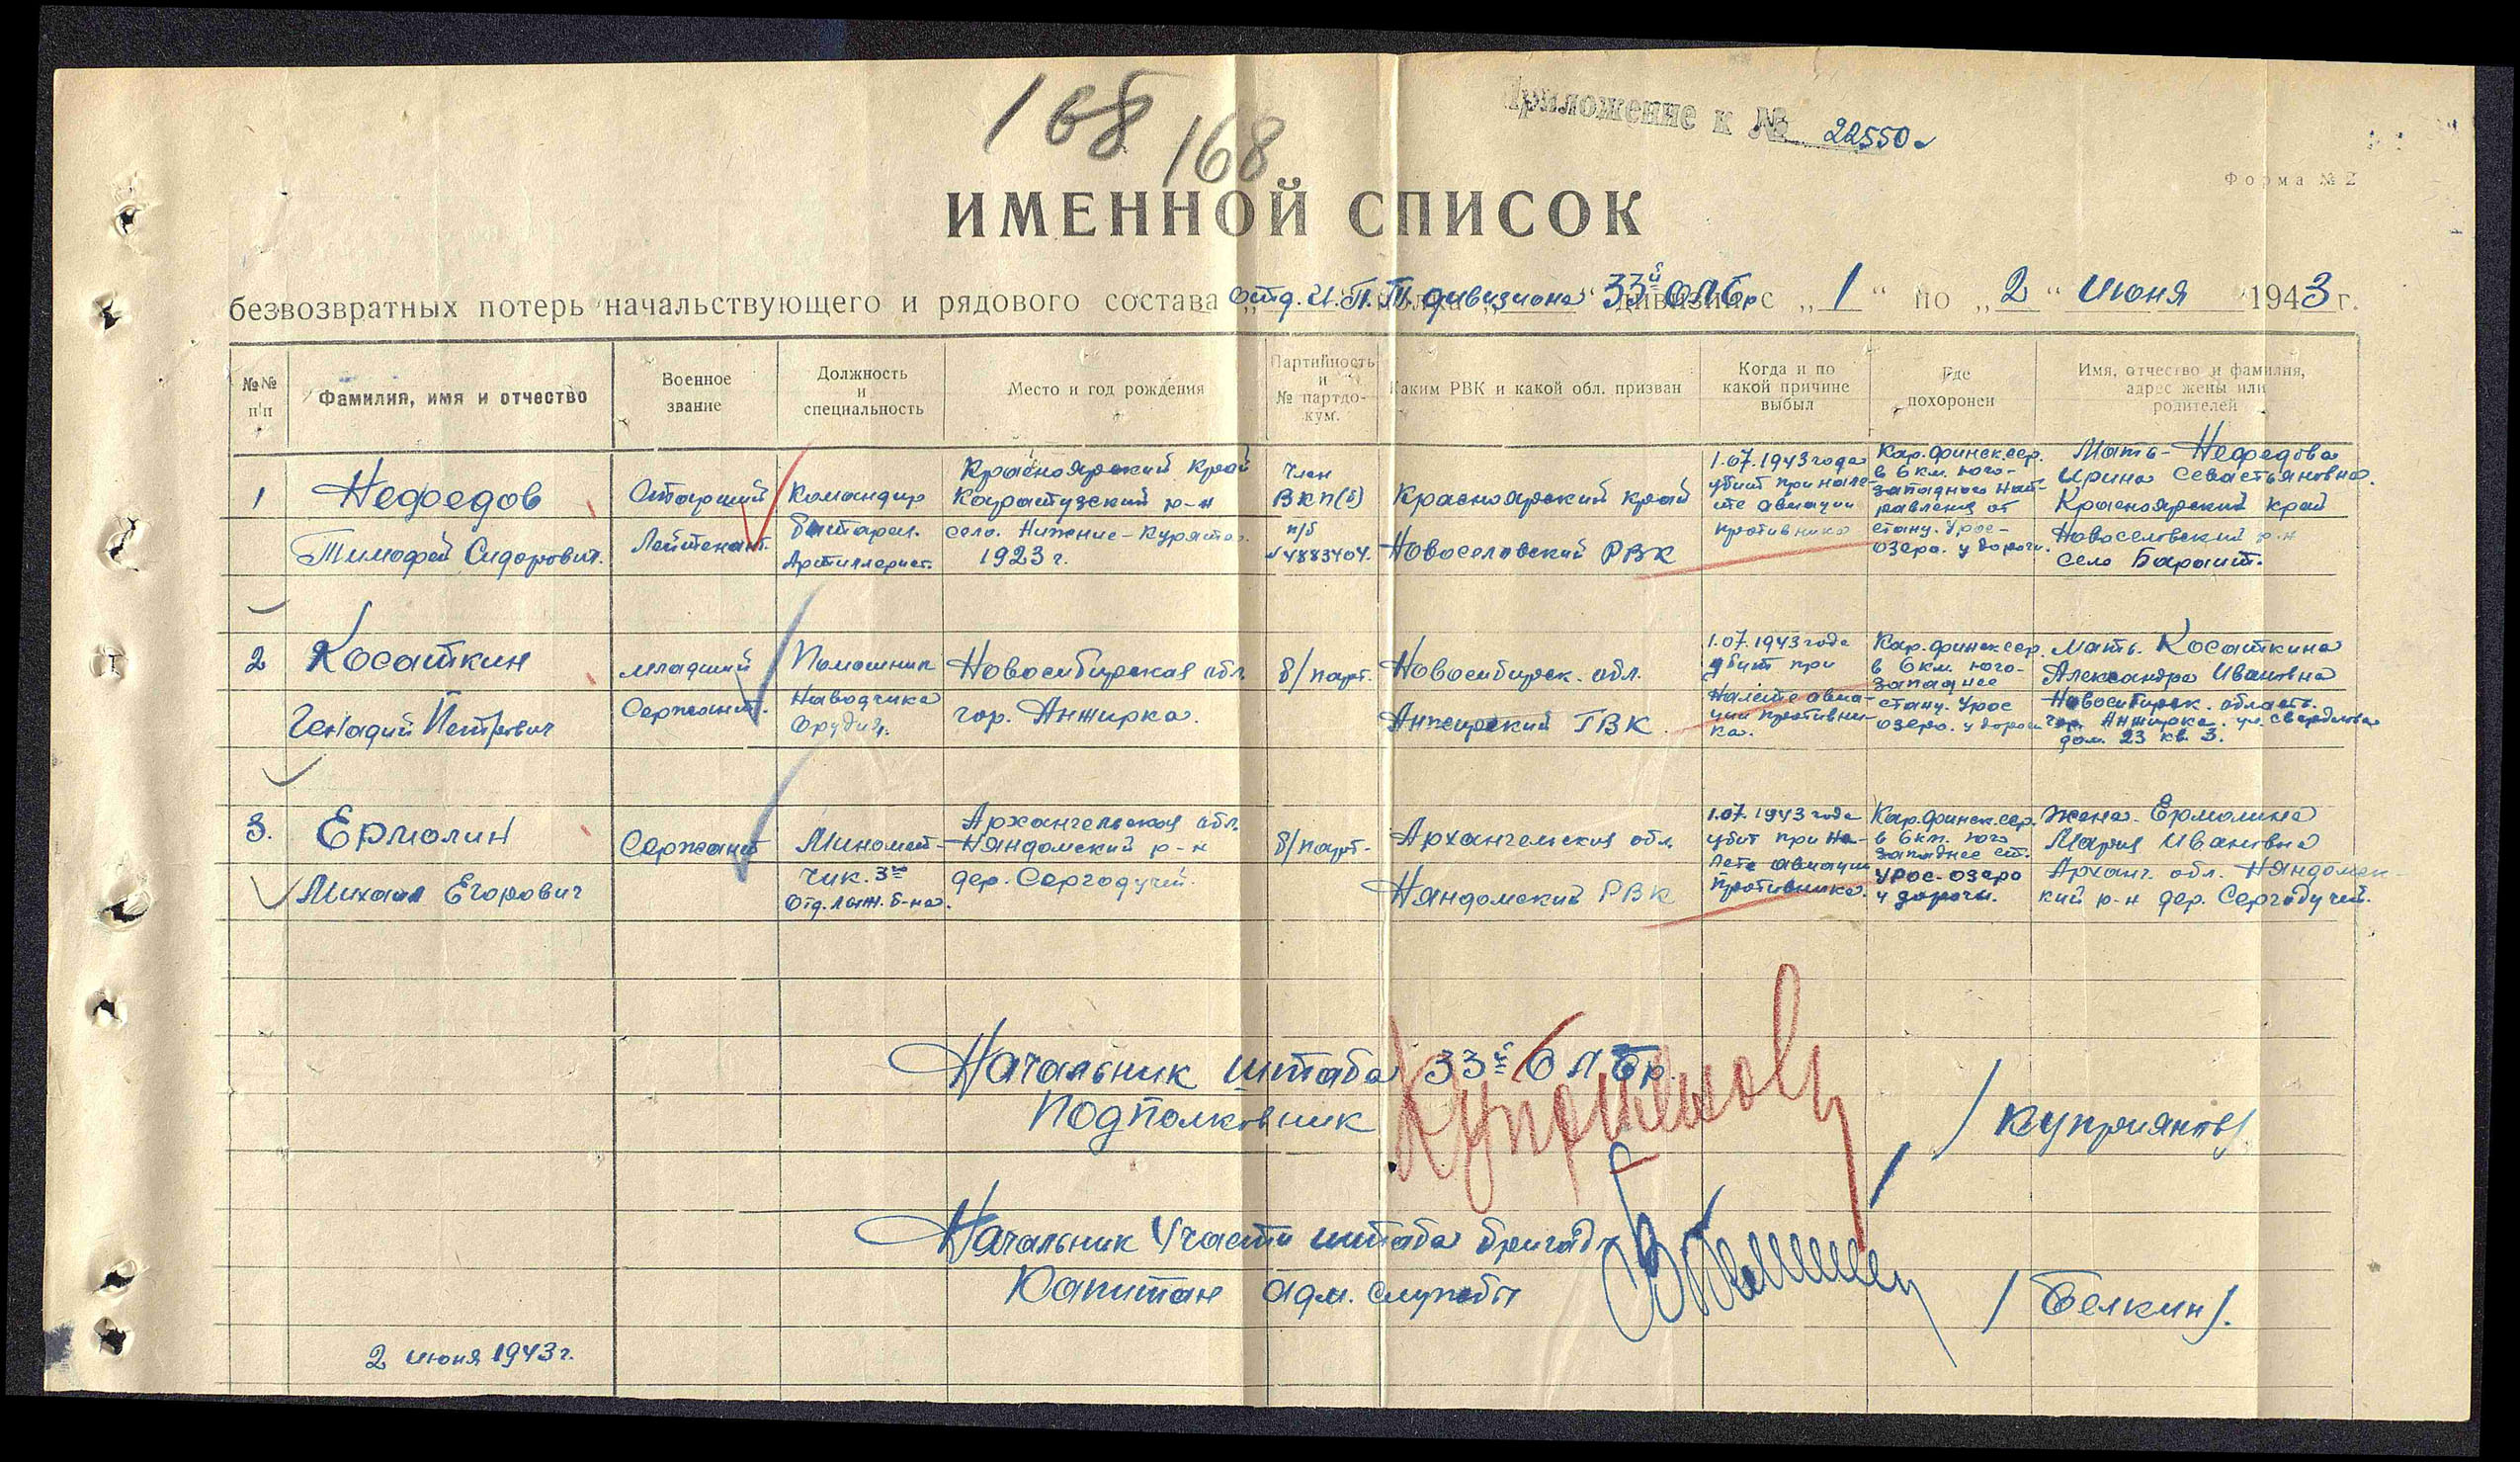 168
168
Приложение к № 22550с
Форма № 2
ИМЕННОЙ СПИСОК
безвозвратных потерь начальствующего и рядового состава отд. И.П.Т. дивизиона 33й олбр с „1“ по „2“ июня 1943 г.
№№ п/п
Фамилия, имя и отчество
Военное звание
Должность и специальность
Место и год рождения
Партийность и № партдо-кум.
Каким РВК и какой обл. призван
Когда и по какой причине выбыл
Где похоронен
Имя, отчество и фамилия, адрес жены или родителей
1
Нефедов
Тимофей Сидорович.
Старший
Лейтенант.
Командир
батареи.
Артиллерист.
Красноярский край
Каратузский р-н
село. Нижние-Куряты.
1923 г.
Член
ВКП(б)
п/б
№4883404.
Красноярский край
Новоселовский РВК
1.07.1943 года
убит при нале-
те авиации
противника
Кар.финск.сср.
в 6 км. юго-
западного нап-
равления от
станц. Урос-
озеро. у дороги.
Мать - Нефедова
Ирина Севастьяновна.
Красноярский край
Новоселовский р-н
село Бараит.
2
Косаткин
Генадий Петрович
младший
Сержант.
Помошник
Наводчика
Орудия.
Новосибирская обл.
гор. Анжирка.
б/парт.
Новосибирск. обл.
Анжирский ГВК
1.07.1943 года
убит при
налете авиа-
ции противни-
ка.
Кар.финск.сср.
в 6 км. юго-
западнее
станц. Урос
озеро. у дороги
мать. Косаткина
Александра Ивановна
Новосибирск. область.
гор. Анжирка. ул. Свердлова
дом. 23 кв. 3.
3.
Ермолин
Михаил Егорович
Сержант
Миномет-
чик. 3го
Отд. лыж. б-на.
Архангельская обл.
Няндомский р-н
дер. Сергодучей.
б/парт.
Архангельская обл.
Няндомский РВК
1.07.1943 года
убит при на-
лете авиации
противника.
Кар.финск.сср.
в 6 км. юго
западнее ст.
Урос-озеро
у дороги.
жена. Ермолина
Мария Ивановна
Арханг. обл. Няндомск-
кий р-н дер. Сергодучей.
Начальник штаба 33й ОЛБр.
Подполковник
/Куприянов/
Начальник 4 части штаба бригады
Капитан адм. службы
/Белкин/.
2 июня 1943 г.